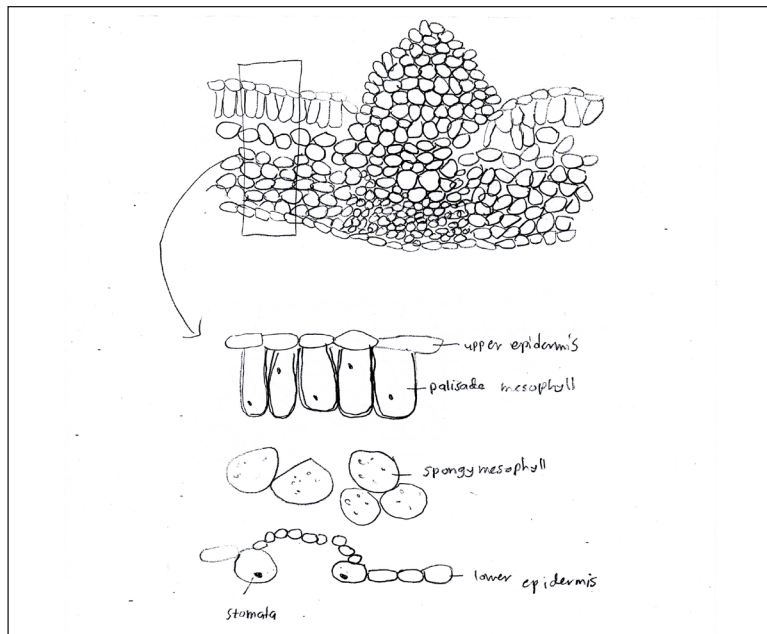 upper epidermis
palisade mesophyll
spongy mesophyll
lower epidermis
stomata